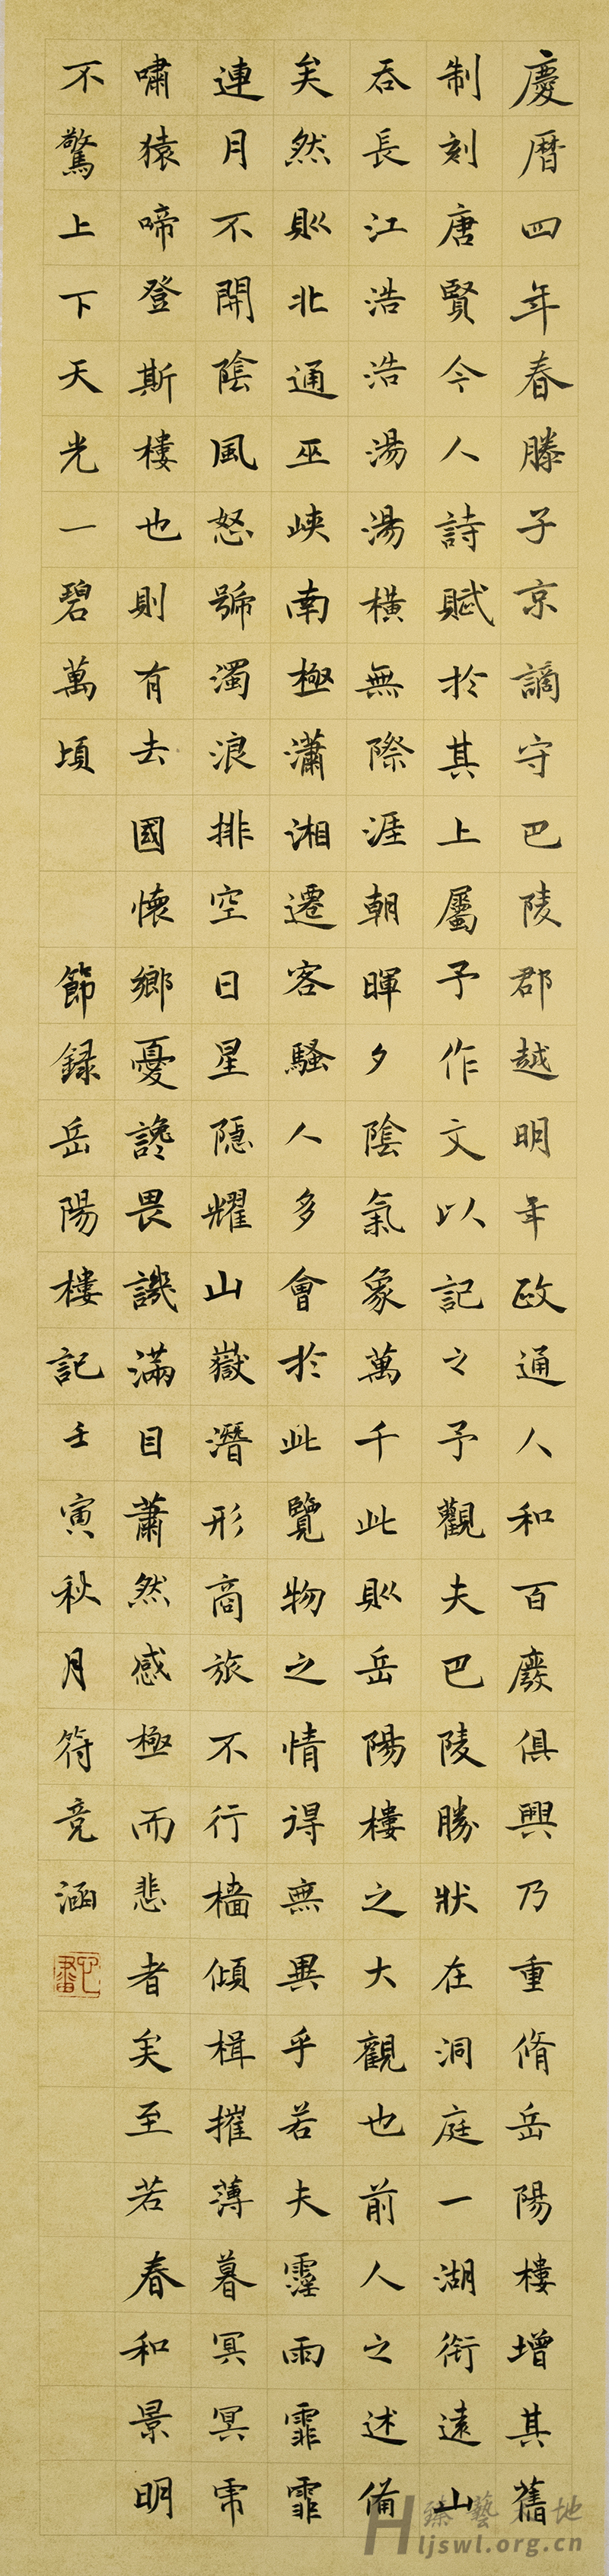 慶暦四年春滕子京謫守巴陵郡越明年政通人和百廢俱興乃重脩岳陽樓增其舊
制刻唐賢今人詩賦於其上屬予作文以記之予觀夫巴陵勝狀在洞庭一湖銜遠山
吞長江浩浩湯湯橫無際涯朝暉夕陰氣象萬千此則岳陽樓之大觀也前人之述備
矣然則北通巫峽南極瀟湘遷客騷人多會於此覽物之情得無異乎若夫霪雨霏霏
連月不開陰風怒號濁浪排空日星隱耀山嶽潛形商旅不行檣傾楫摧薄暮冥冥虎
嘯猿啼登斯樓也則有去國懷鄉憂讒畏譏滿目蕭然感極而悲者矣至若春和景明
不驚上下天光一碧萬頃 節録岳陽樓記壬寅秋月符竞涵
ljswl.org.cn